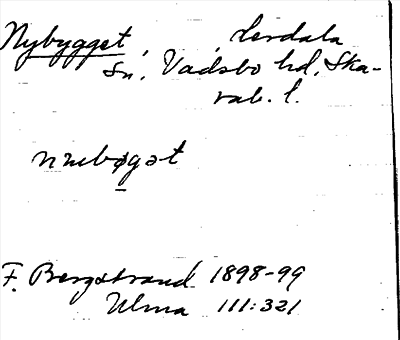 Nybygget, Lerdala
Sn, Vadsbo hd, Ska-
rab. l.
nÿebøgət
F. Bergstrand 1898-99
Ulma 111:321